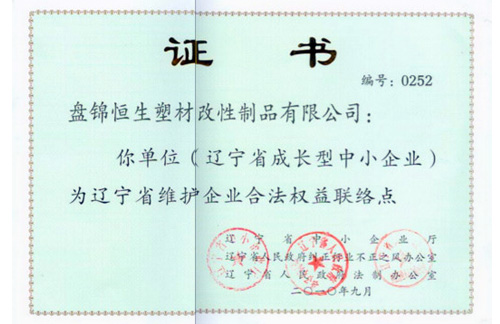 证 书
编号：0252
盘锦恒生塑材改性制品有限公司：
你单位（辽宁省成长型中小企业）
为辽宁省维护企业合法权益联络点
辽宁省中小企业厅
辽宁省人民政府纠正行业不正之风办公室
辽宁省人民政府法制办公室
二〇一〇年九月